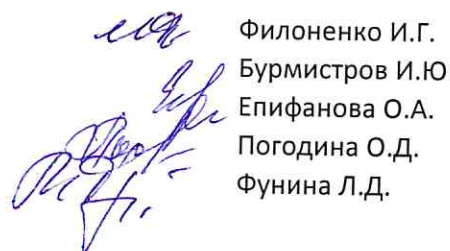 Филоненко И.Г.
Бурмистров И.Ю
Епифанова О.А.
Погодина О.Д.
Фунина Л.Д.